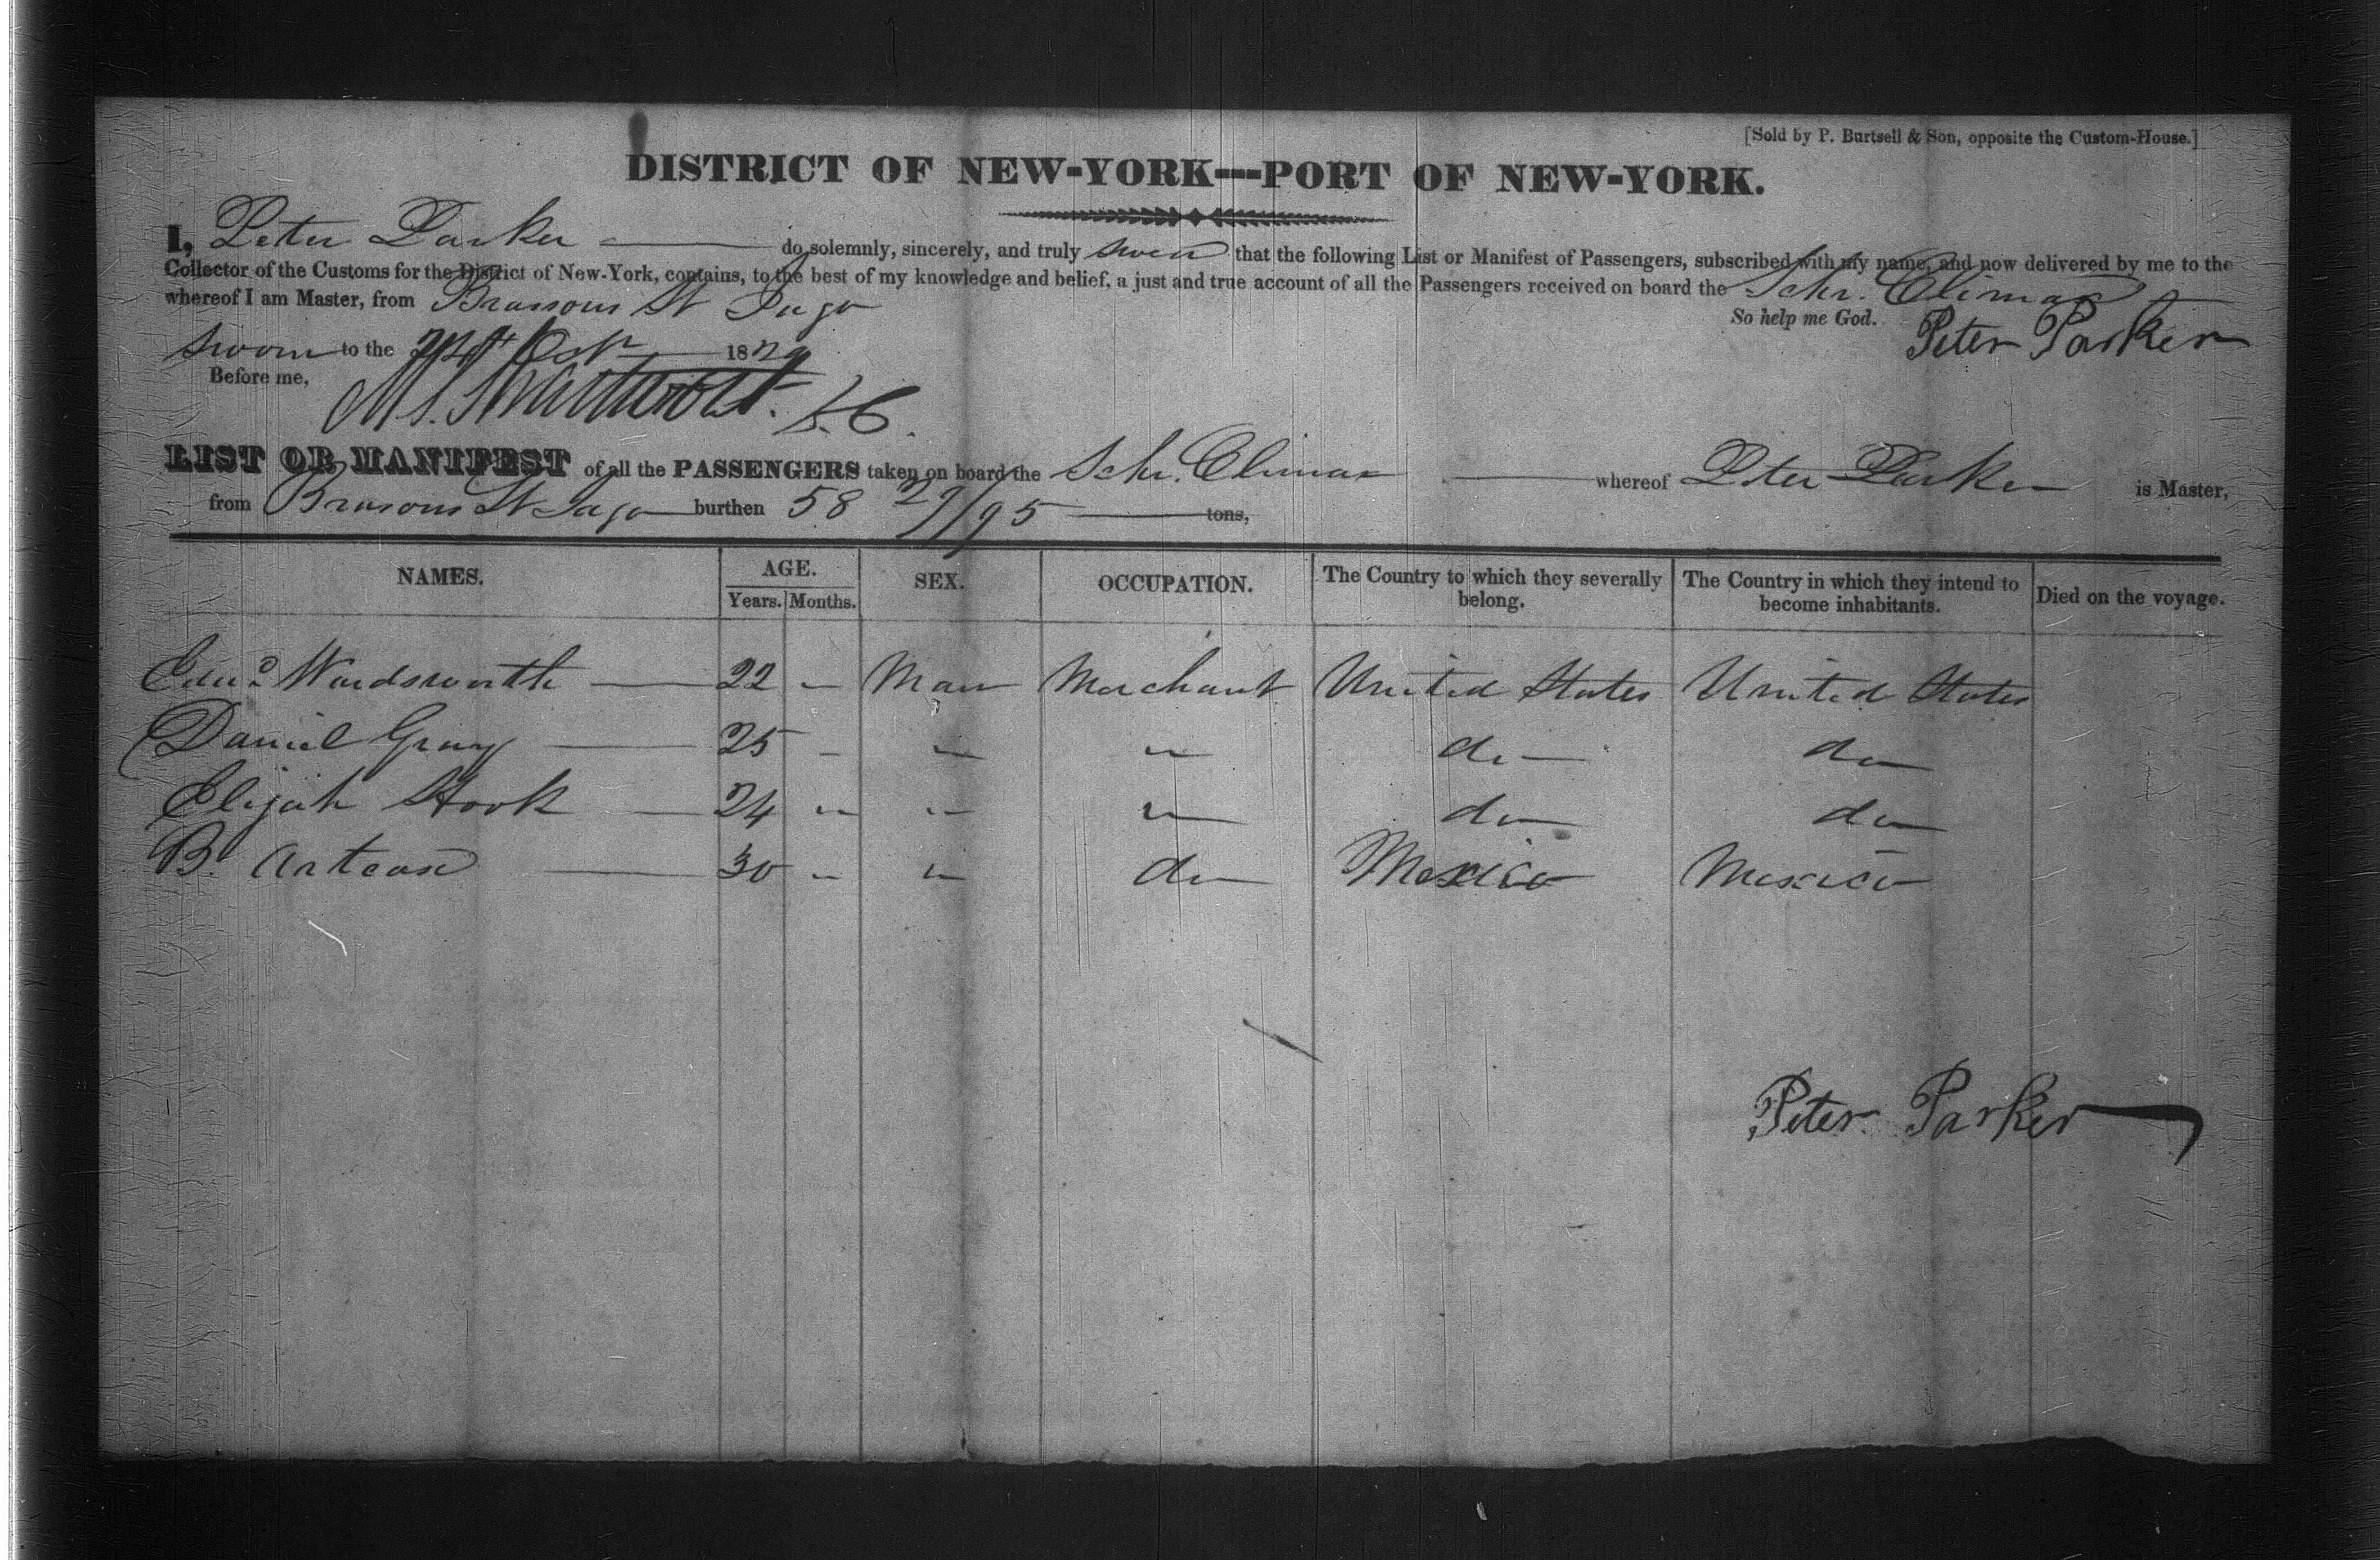 [Sold by P. Burtsell & Son, opposite the Custom-House.]
DISTRICT OF NEW-YORK—PORT OF NEW-YORK.
I, Peter Parker do solemnly, sincerely, and truly swear that the following List or Manifest of Passengers, subscribed with my name, and now delivered by me to the
Collector of the Customs for the District of New-York, contains, to the best of my knowledge and belief, a just and true account of all the Passengers received on board the Schr. Climax
whereof I am Master, from St Iago So help me God. Peter Parker
Sworn to the Octr 1829
Before me,
M. S. Swartwout.
LIST OR MANIFEST of all the PASSENGERS taken on board the Schr. Climax whereof Peter Parker is Master,
from St Iago burthen 58 29/95 tons,
NAMES. AGE. SEX. OCCUPATION. The Country to which they severally belong. The Country in which they intend to become inhabitants. Died on the voyage.
Years. Months.
Edwd Wardsworth 22 — Man Merchant United States United States
Daniel Gray 25 — " " do do
Elijah Hook 24 " " " do do
B. 30 " " do Mexico Mexico
Peter Parker